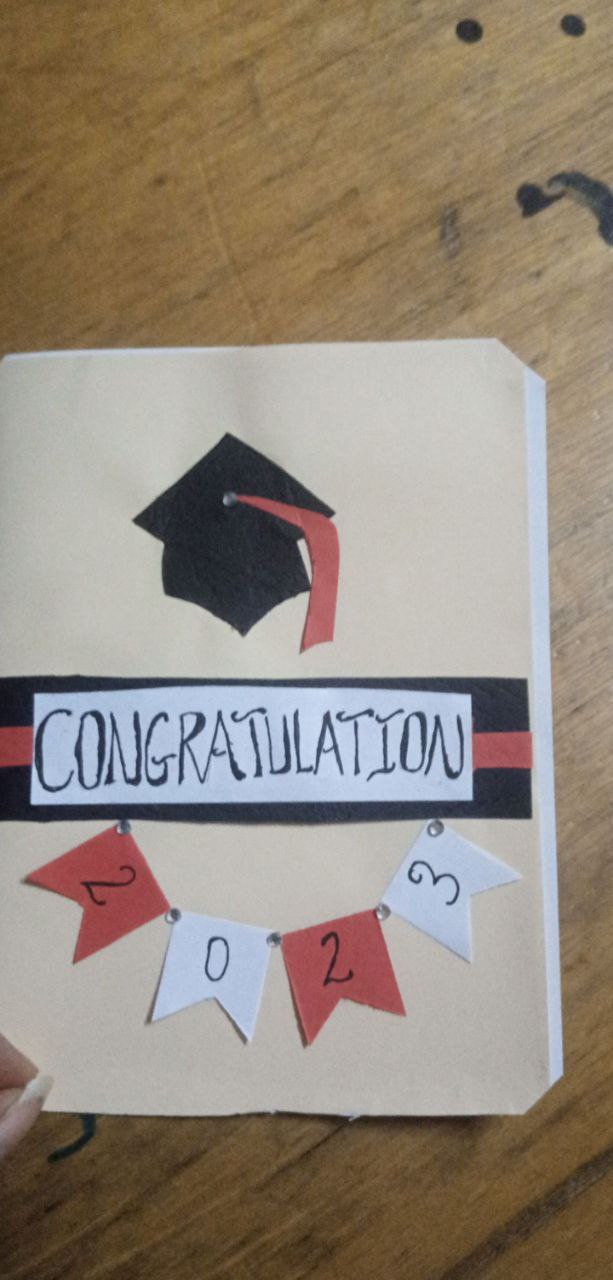 CONGRATULATION
2023